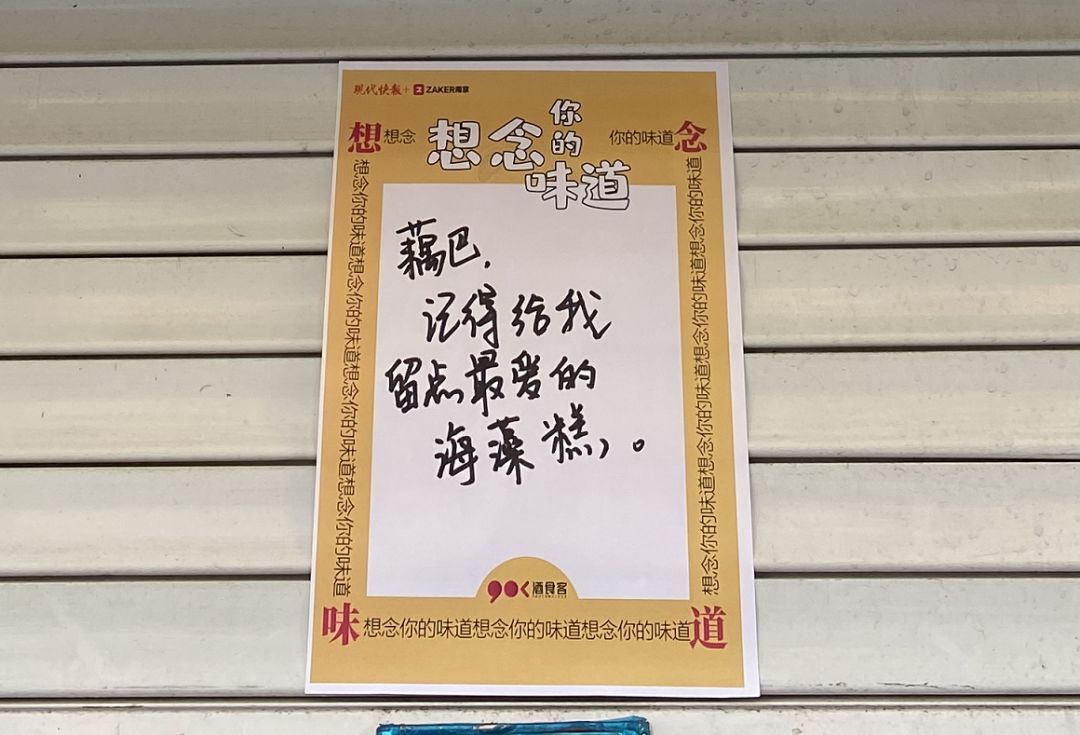 现代快报+ ZAKER南京
想念你的味道
想想念
你的味道念
想念你的味道想念你的味道想念你的味道想念你的味道
想念你的味道想念你的味道想念你的味道想念你的味道
藕巴,
记得给我
留点最爱的
海藻糕,。
酒食客
味想念你的味道想念你的味道想念你的味道道